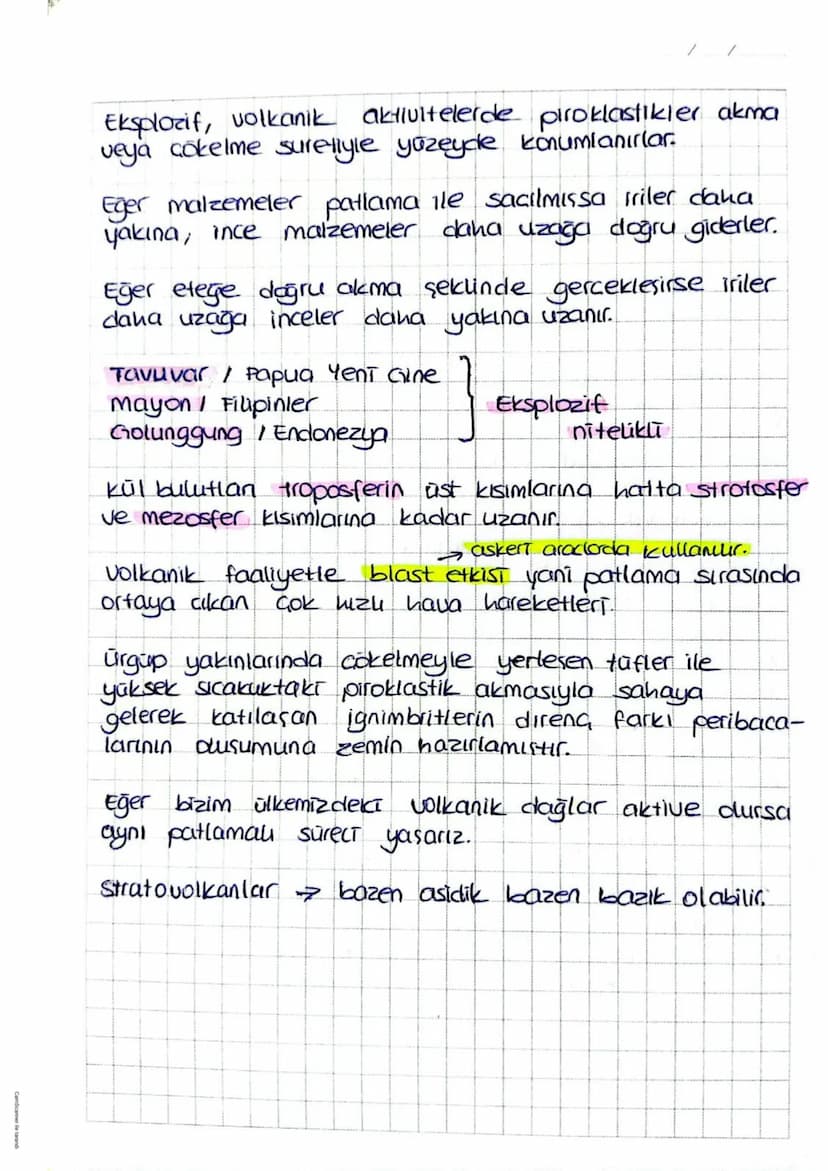 / /
Eksplozif, volkanik aktivitelerde piroklastikler akma
veya çökelme suretiyle yüzeyde konumlanırlar.
Eğer malzemeler patlama ile saçılmışsa iriler daha
yakına, ince malzemeler daha uzağa doğru giderler.
Eğer eteğe doğru akma şeklinde gerçekleşirse iriler
daha uzağa inceler daha yakına uzanır.
Tavuvar / Papua Yeni Gine
Mayon / Filipinler
Golunggung / Endonezya
Eksplozif
nitelikli
Kül bulutları troposferin üst kısımlarına hatta stratosfer
ve mezosfer kısımlarına kadar uzanır.
→ askeri araçlarda kullanılır.
Volkanik faaliyetle blast etkisi yani patlama sırasında
ortaya çıkan çok hızlı hava hareketleri.
Ürgüp yakınlarında çökelmeyle yerleşen tüfler ile
yüksek sıcaklıktaki piroklastik akmasıyla sahaya
gelerek katılaşan ignimbritlerin direnç farkı peribaca-
larının oluşumuna zemin hazırlamıştır.
Eğer bizim ülkemizdeki volkanik dağlar aktive olursa
aynı patlamalı süreci yaşarız.
Stratovolkanlar → bazen asidik bazen bazik olabilir.
CamScanner ile tarandı